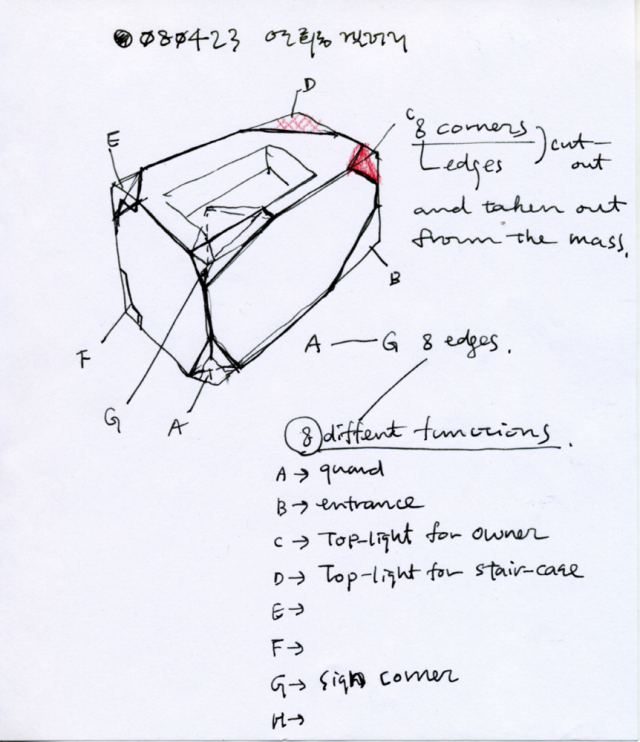 080423
D
E
C
8 corners
edges
cut-
out
and taken out
from the mass.
B
F
G
A
A — G 8 edges.
8 diffent functions.
A → guard
B → entrance
C → Top-light for owner
D → Top-light for stair-case
E →
F →
G → sign corner
H →